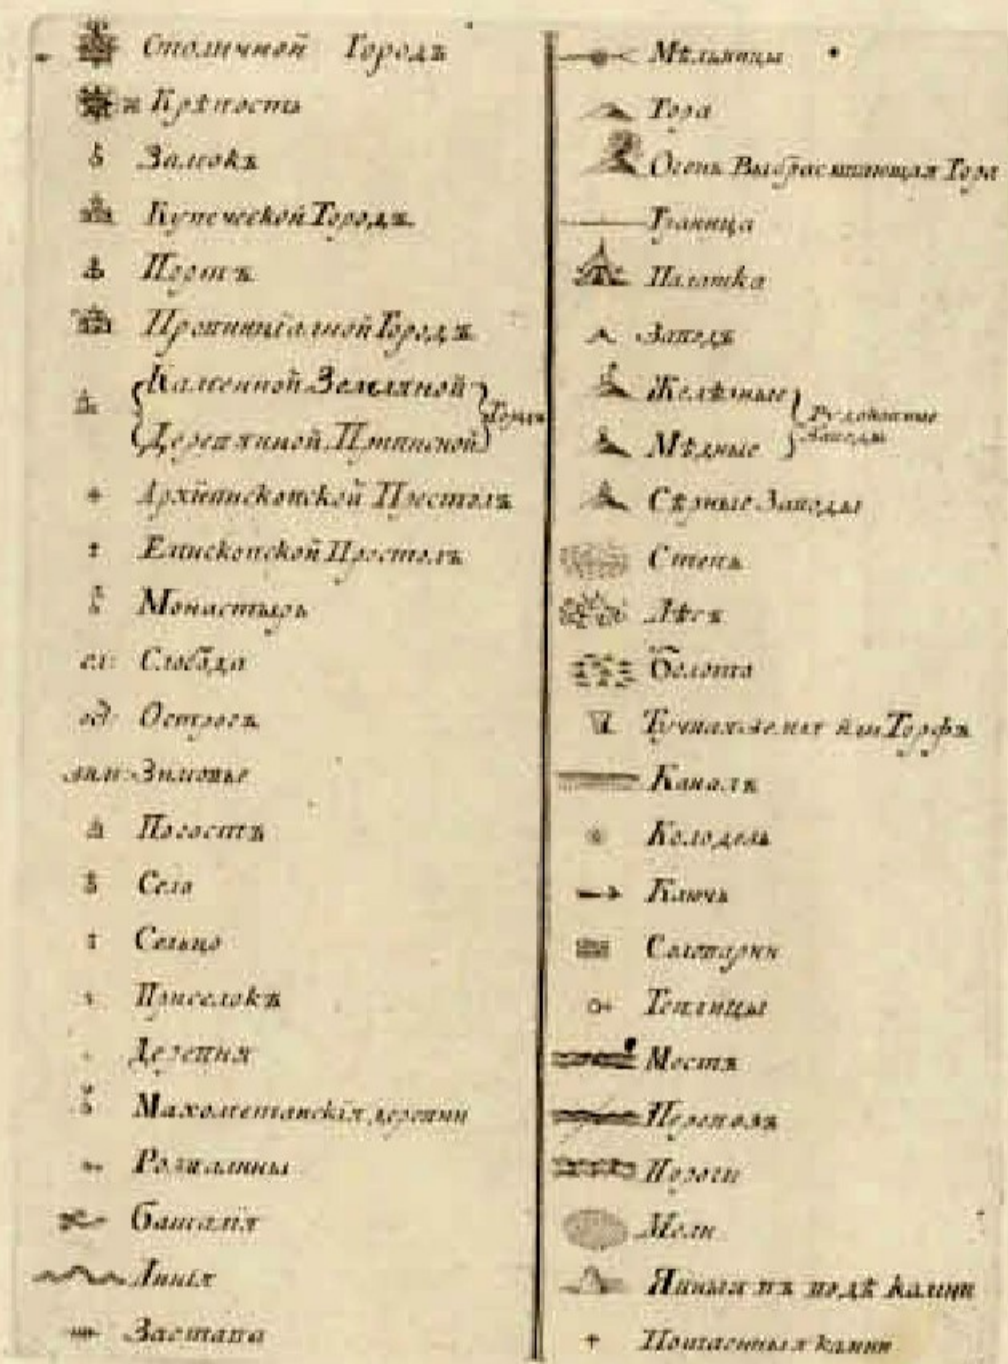 Столичной Городъ
Крѣпость
Замокъ
Купеческой Городъ
Портъ
Провинцїалной Городъ
Каменной Земляной
Деревянной Городъ
Архїепископской Престолъ
Епископской Престолъ
Монастырь
сл: Слобода
ос: Острогъ
зим: Зимовье
Погостъ
Село
Сельцо
Приселокъ
Деревня
Махометанскїя деревни
Розвалины
Баталїя
Линїя
Застава
Мѣльницы
Гора
Огень Выбрасывающая Гора
Граница
Палатка
Заводъ
Желѣзные
Мѣдные
Рудокопные
Заводы
Сѣрные Заводы
Степь
Лѣсъ
Болото
Тучная земля или Торфъ
Каналъ
Колодезь
Ключь
Солеварни
Теплицы
Мостъ
Перевозъ
Пороги
Мели
Явныя въ водѣ камни
Потаенныя камни